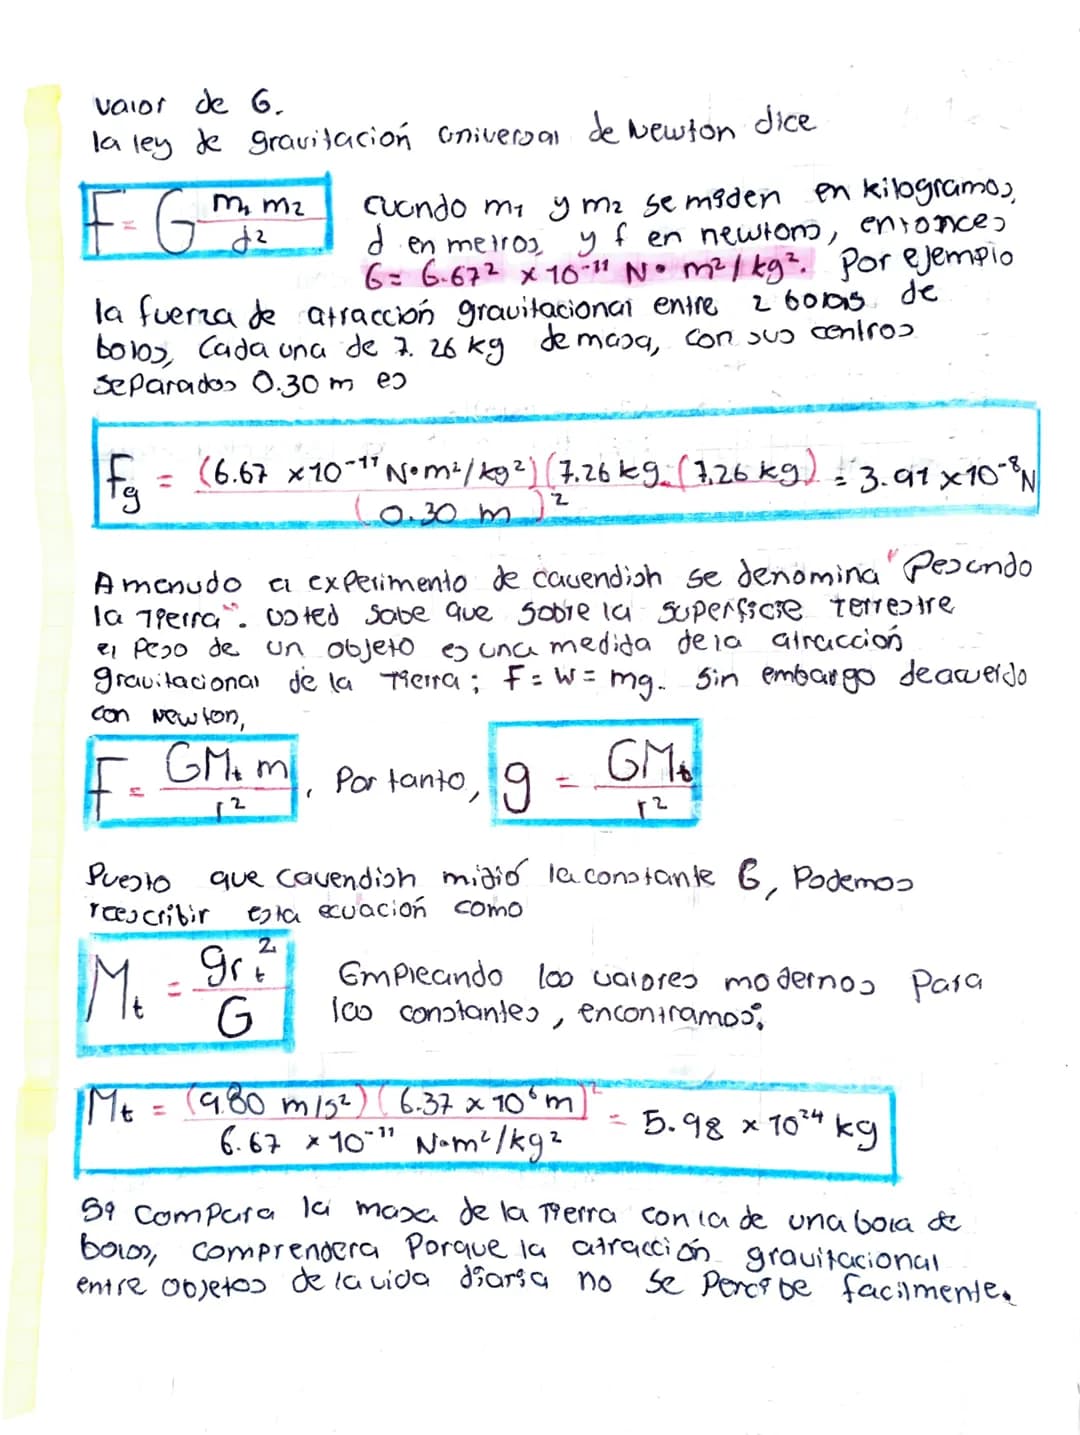 valor de G.
la ley de gravitación universal de Newton dice
F = G m₁ m₂ / d²
cuando m₁ y m₂ se miden en kilogramos,
d en metros, y f en newtons, entonces
G = 6.67² x 10⁻¹¹ N • m² / kg². Por ejemplo
la fuerza de atracción gravitacional entre 2 bolas de
bolos, Cada una de 7.26 kg de masa, con sus centros
separados 0.30 m es
Fg = (6.67 x 10⁻¹¹ N•m²/kg²) (7.26 kg. (7.26 kg) / (0.30 m)² = 3.91 x 10⁻⁸ N
A menudo al experimento de cavendish se denomina "Pesando
la Tierra". Usted sabe que sobre la superficie terrestre
el peso de un objeto es una medida de la atracción
gravitacional de la Tierra; F = W = mg. Sin embargo deacuerdo
con Newton,
F = GMt m / r² , Por tanto, g = GMt / r²
Puesto que cavendish midió la constante G, Podemos
reescribir esta ecuación como
Mt = grt² / G
Empleando los valores modernos Para
las constantes, encontramos:
Mt = (9.80 m/s²) (6.37 x 10⁶ m)² / 6.67 x 10⁻¹¹ N•m²/kg² = 5.98 x 10²⁴ kg
Si compara la masa de la Tierra con la de una bola de
bolos, comprendera Porque la atracción gravitacional
entre objetos de la vida diaria no se Percibe facilmente.